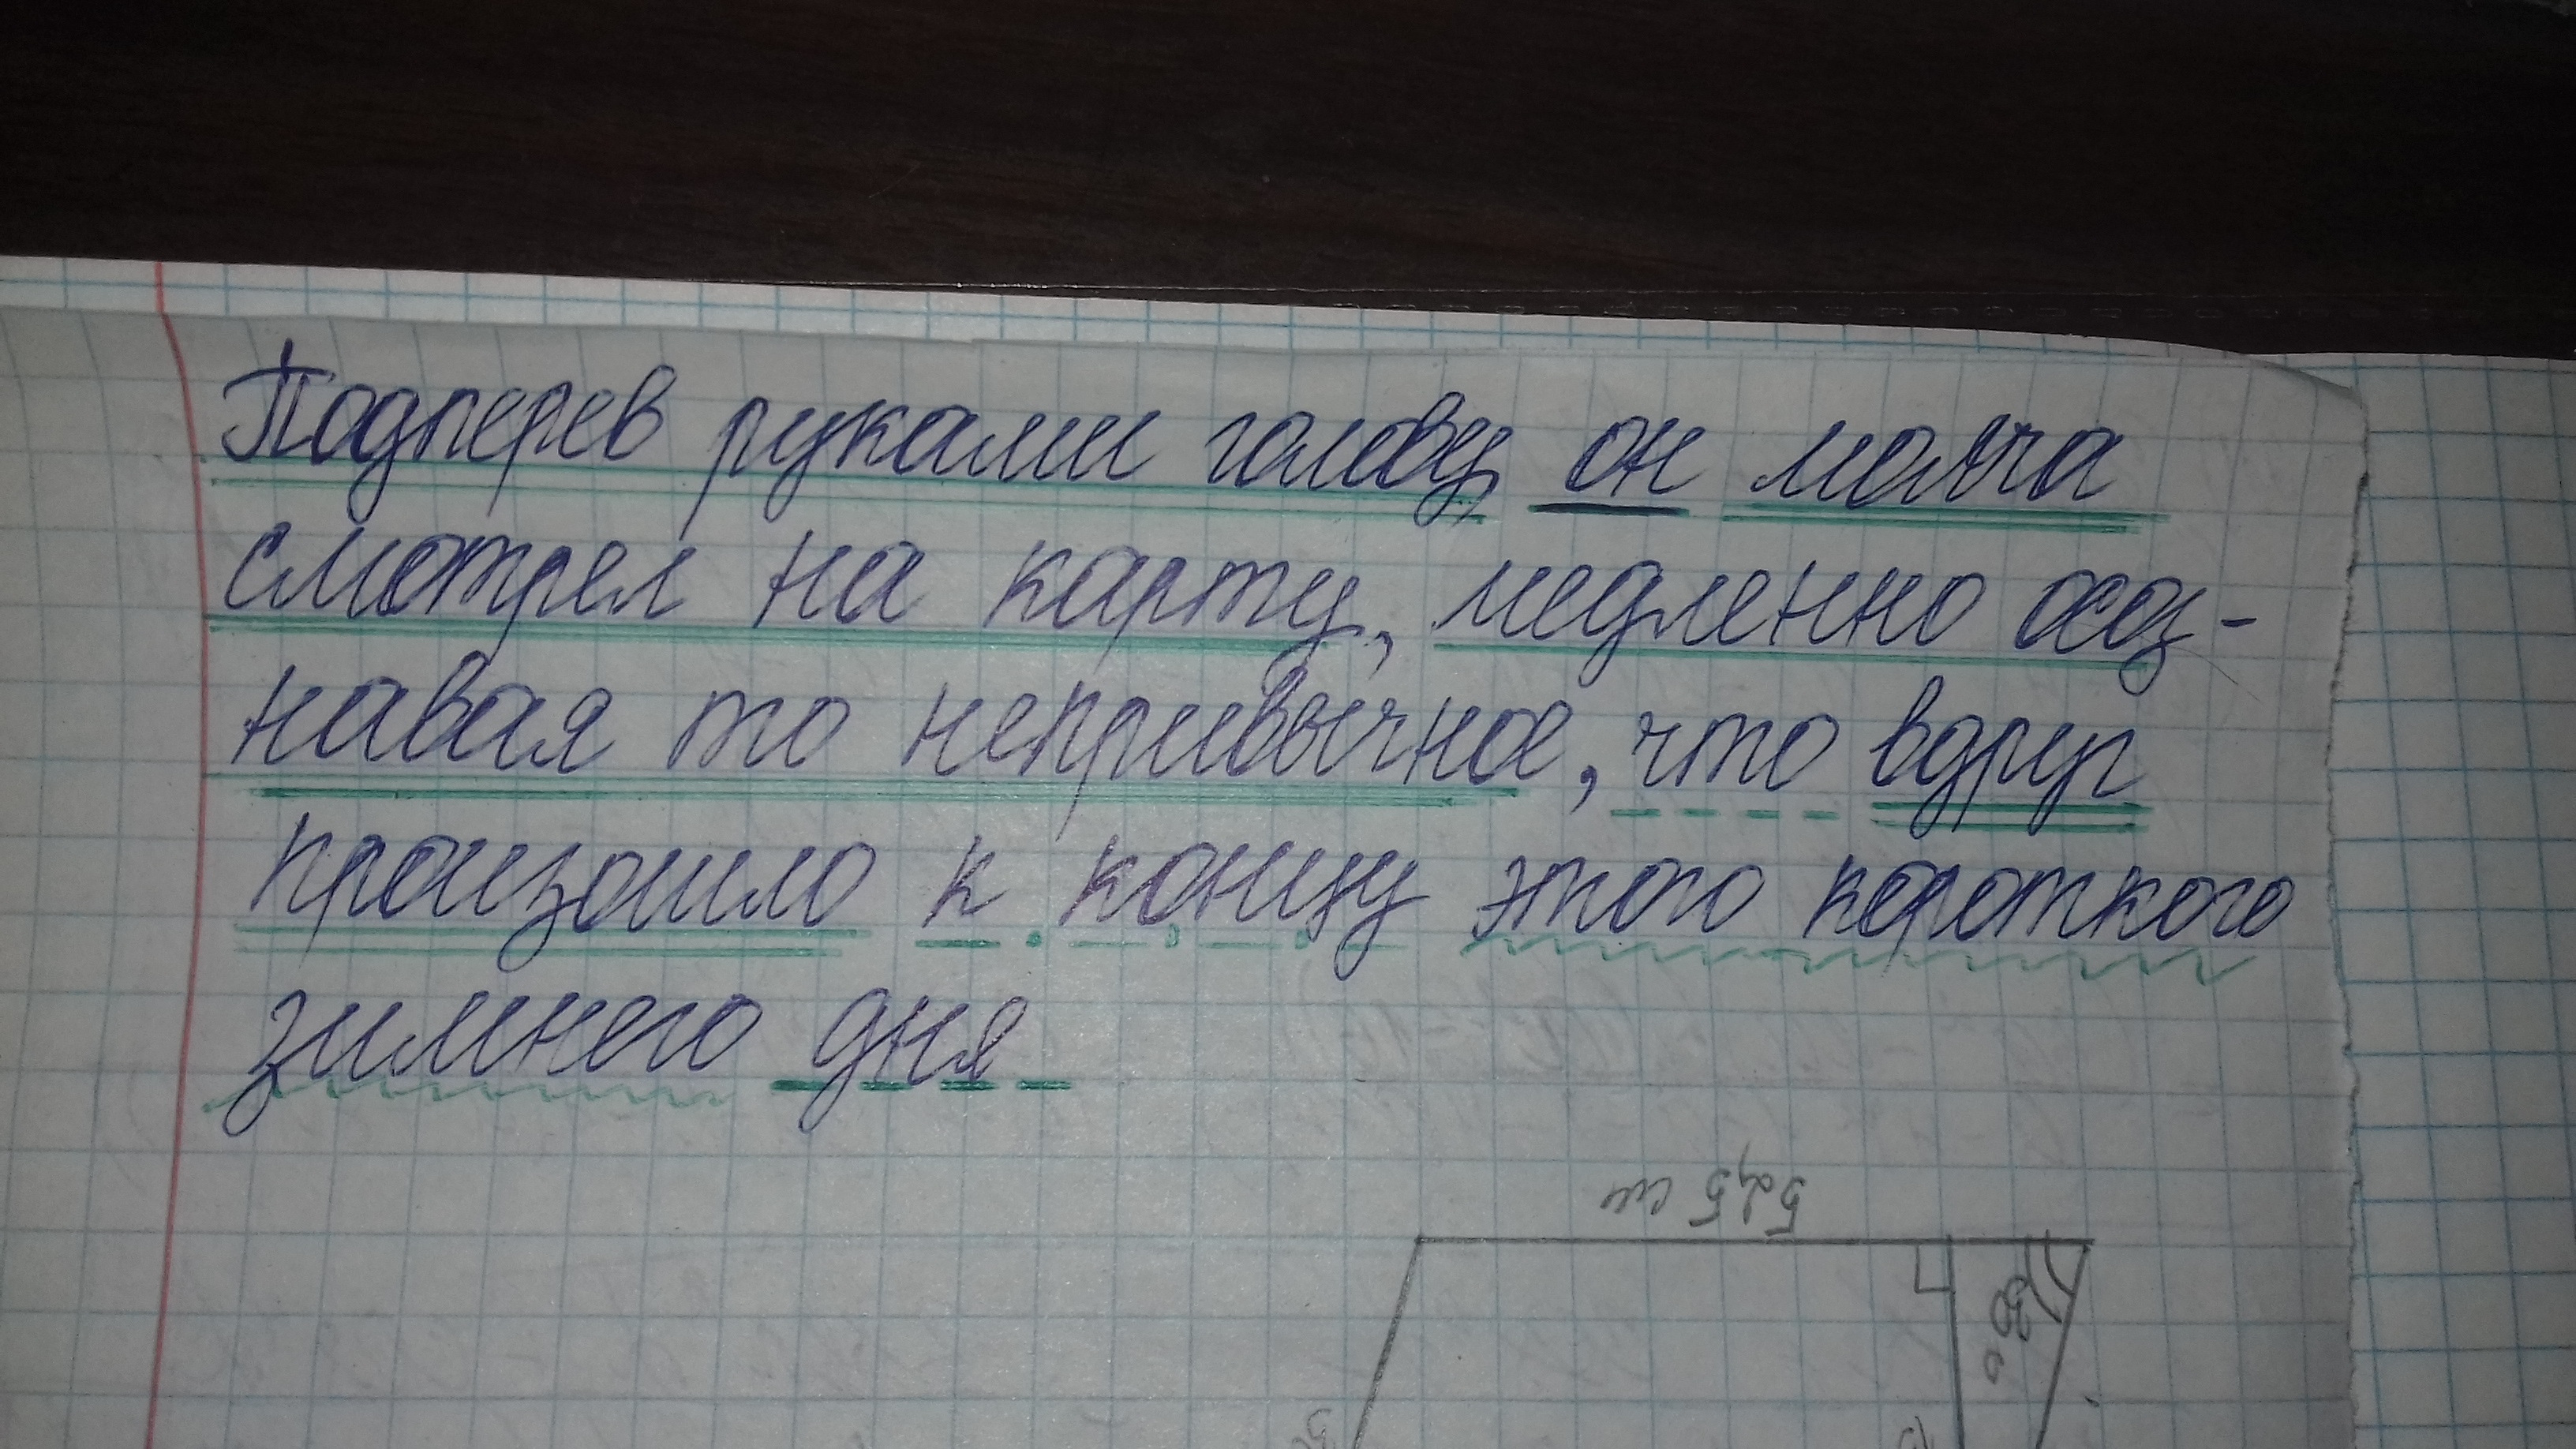 Подперев руками голову он молча
смотрел на карту, медленно осоз-
навая то непривычное, что вдруг
произошло к концу этого короткого
зимнего дня
52,5 см
30°